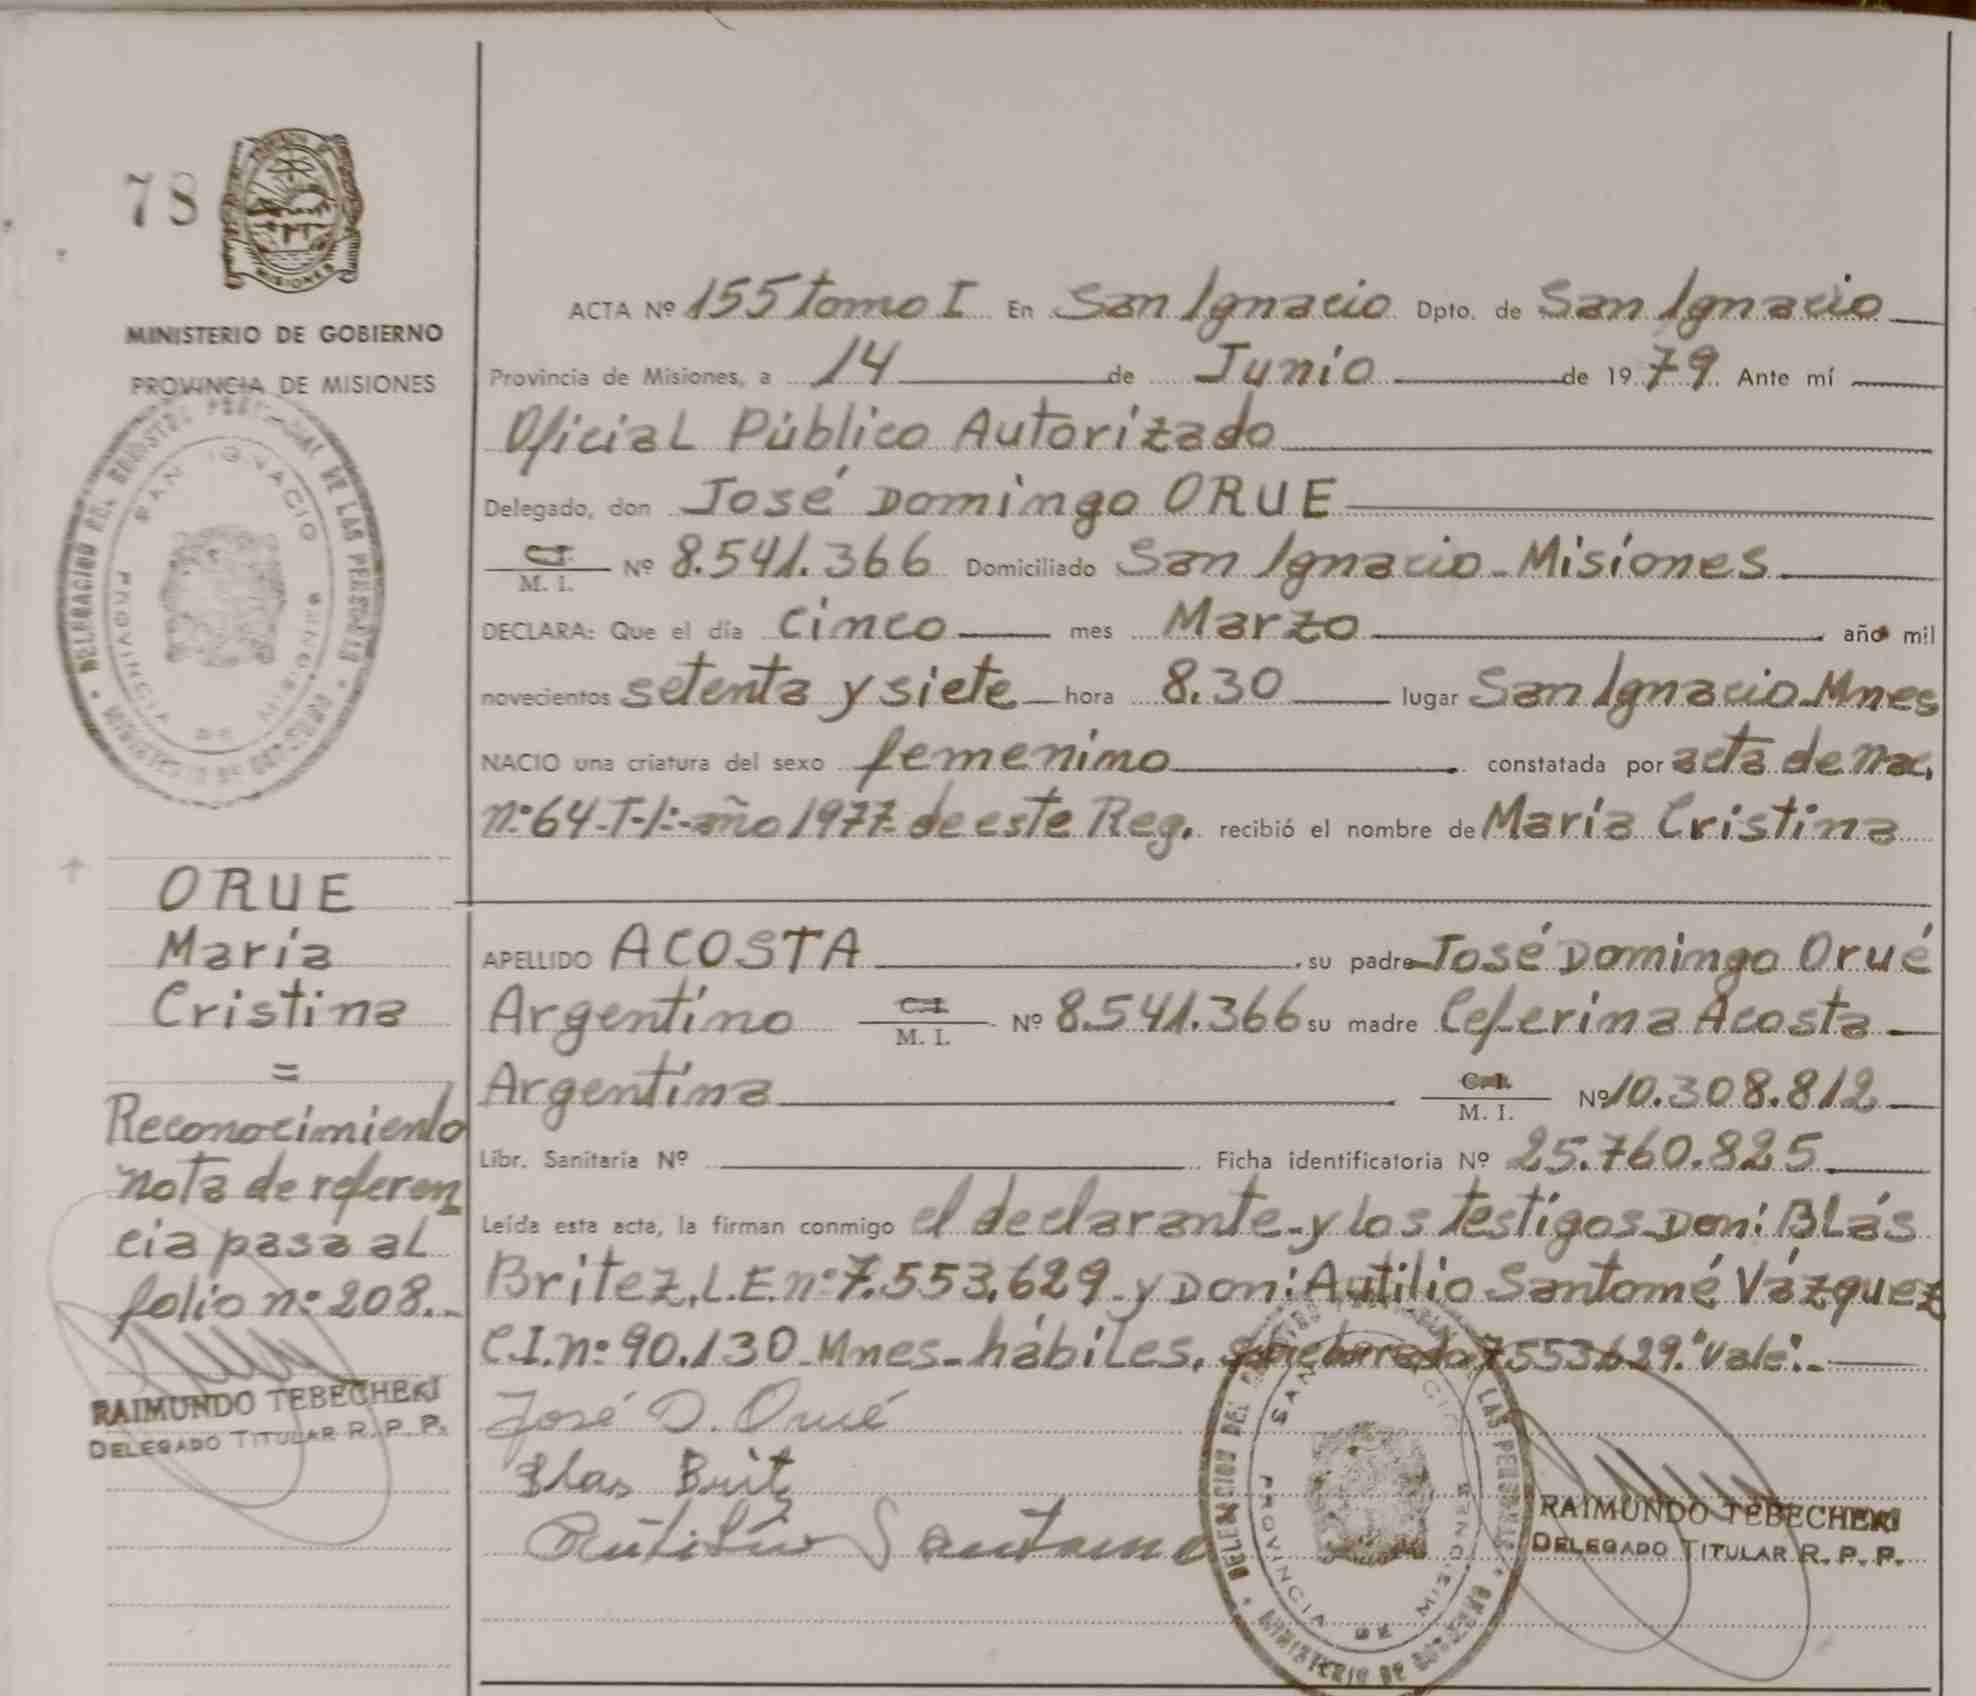 78
MISIONES
MINISTERIO DE GOBIERNO
PROVINCIA DE MISIONES
DELEGACION DEL REGISTRO PROVINCIAL DE LAS PERSONAS
MINISTERIO DE GOBIERNO
SAN IGNACIO
PROVINCIA DE MISIONES
ORUE
María
Cristina
=
Reconocimiento
nota de referen
cia pasa al
folio nº 208.-
RAIMUNDO TEBECHERI
DELEGADO TITULAR R. P. P.
ACTA Nº 155 tomo I En San Ignacio Dpto. de San Ignacio
Provincia de Misiones, a 14 de Junio de 1979 Ante mí
Oficial Público Autorizado
Delegado, don José Domingo ORUE
C.I.
M. I. Nº 8.541.366 Domiciliado San Ignacio - Misiones
DECLARA: Que el día cinco mes Marzo año mil
novecientos setenta y siete hora 8.30 lugar San Ignacio-Mnes
NACIO una criatura del sexo femenino constatada por acta de nac.
nº 64-T-I:-año 1977 de este Reg. recibió el nombre de María Cristina
APELLIDO ACOSTA, su padre José Domingo Orué
Argentino C.I.
M. I. Nº 8.541.366 su madre Ceferina Acosta
Argentina C.I.
M. I. Nº 10.308.812
Libr. Sanitaria Nº Ficha identificatoria Nº 25.760.825
Leída esta acta, la firman conmigo el declarante y los testigos Don: BLás
Britez, L.E. nº 7.553.629 y Don: Autilio Santomé Vázquez
C.I. nº 90.130 Mnes- hábiles. 7553.629. "Vale".-
José D. Orué
Blas Brit
Rutilio Santome
DELEGACION DEL REGISTRO PROVINCIAL DE LAS PERSONAS
MINISTERIO DE GOBIERNO
SAN IGNACIO
PROVINCIA DE MISIONES
RAIMUNDO TEBECHERI
DELEGADO TITULAR R. P. P.